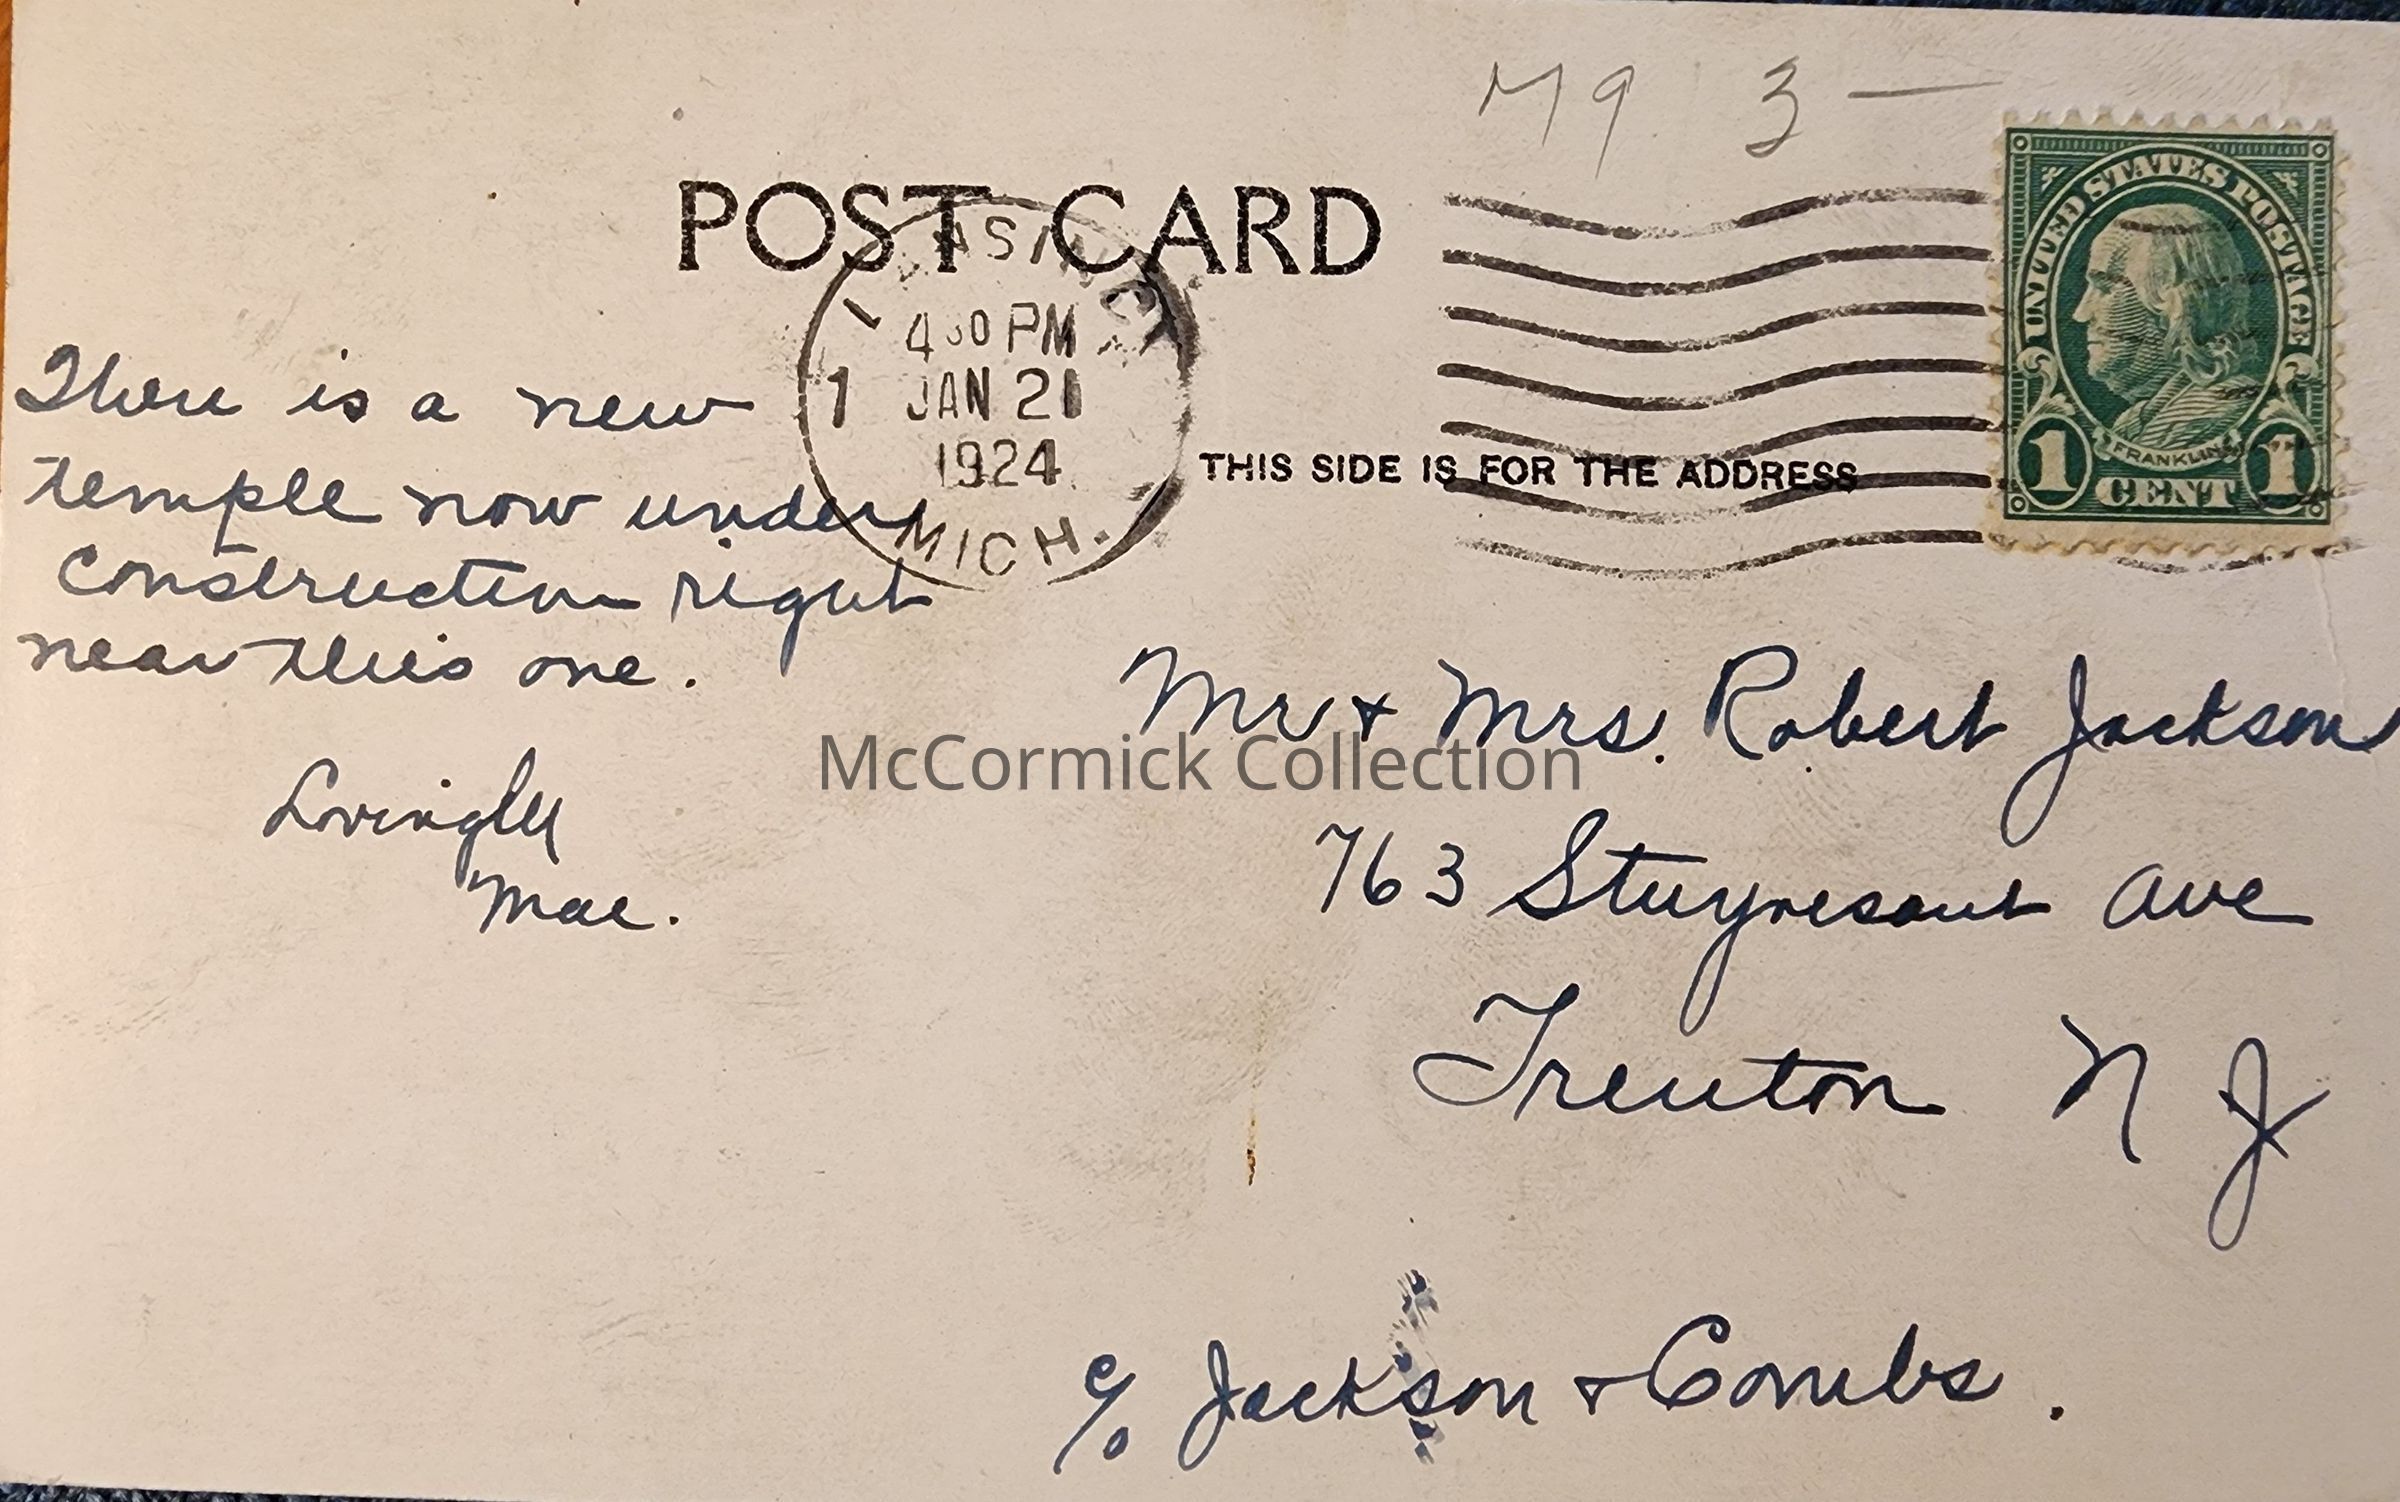 M9 3—
POST CARD
LANSING
1 430 PM
JAN 21
1924
MICH.
UNITED STATES POSTAGE
FRANKLIN
1 CENT 1
THIS SIDE IS FOR THE ADDRESS
There is a new
temple now under
construction right
near this one.
Lovingly
Mae.
Mr + Mrs. Robert Jackson
McCormick Collection
763 Stuyvesant Ave
Trenton N J
c/o Jackson + Combs.